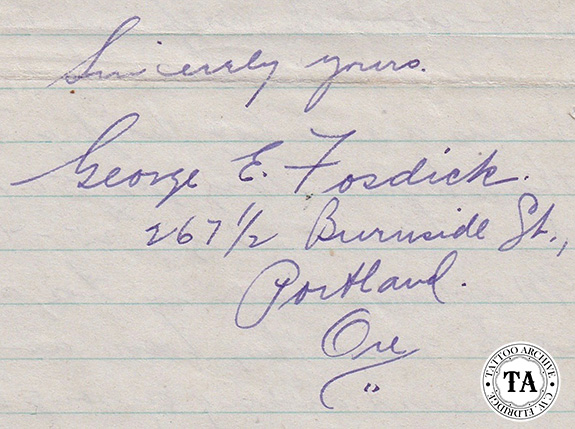 Sincerely yours.
George E. Fosdick.
267 1/2 Burnside St.,
Portland.
Ore
"
TATTOO ARCHIVE
TA
C.W. ELDRIDGE